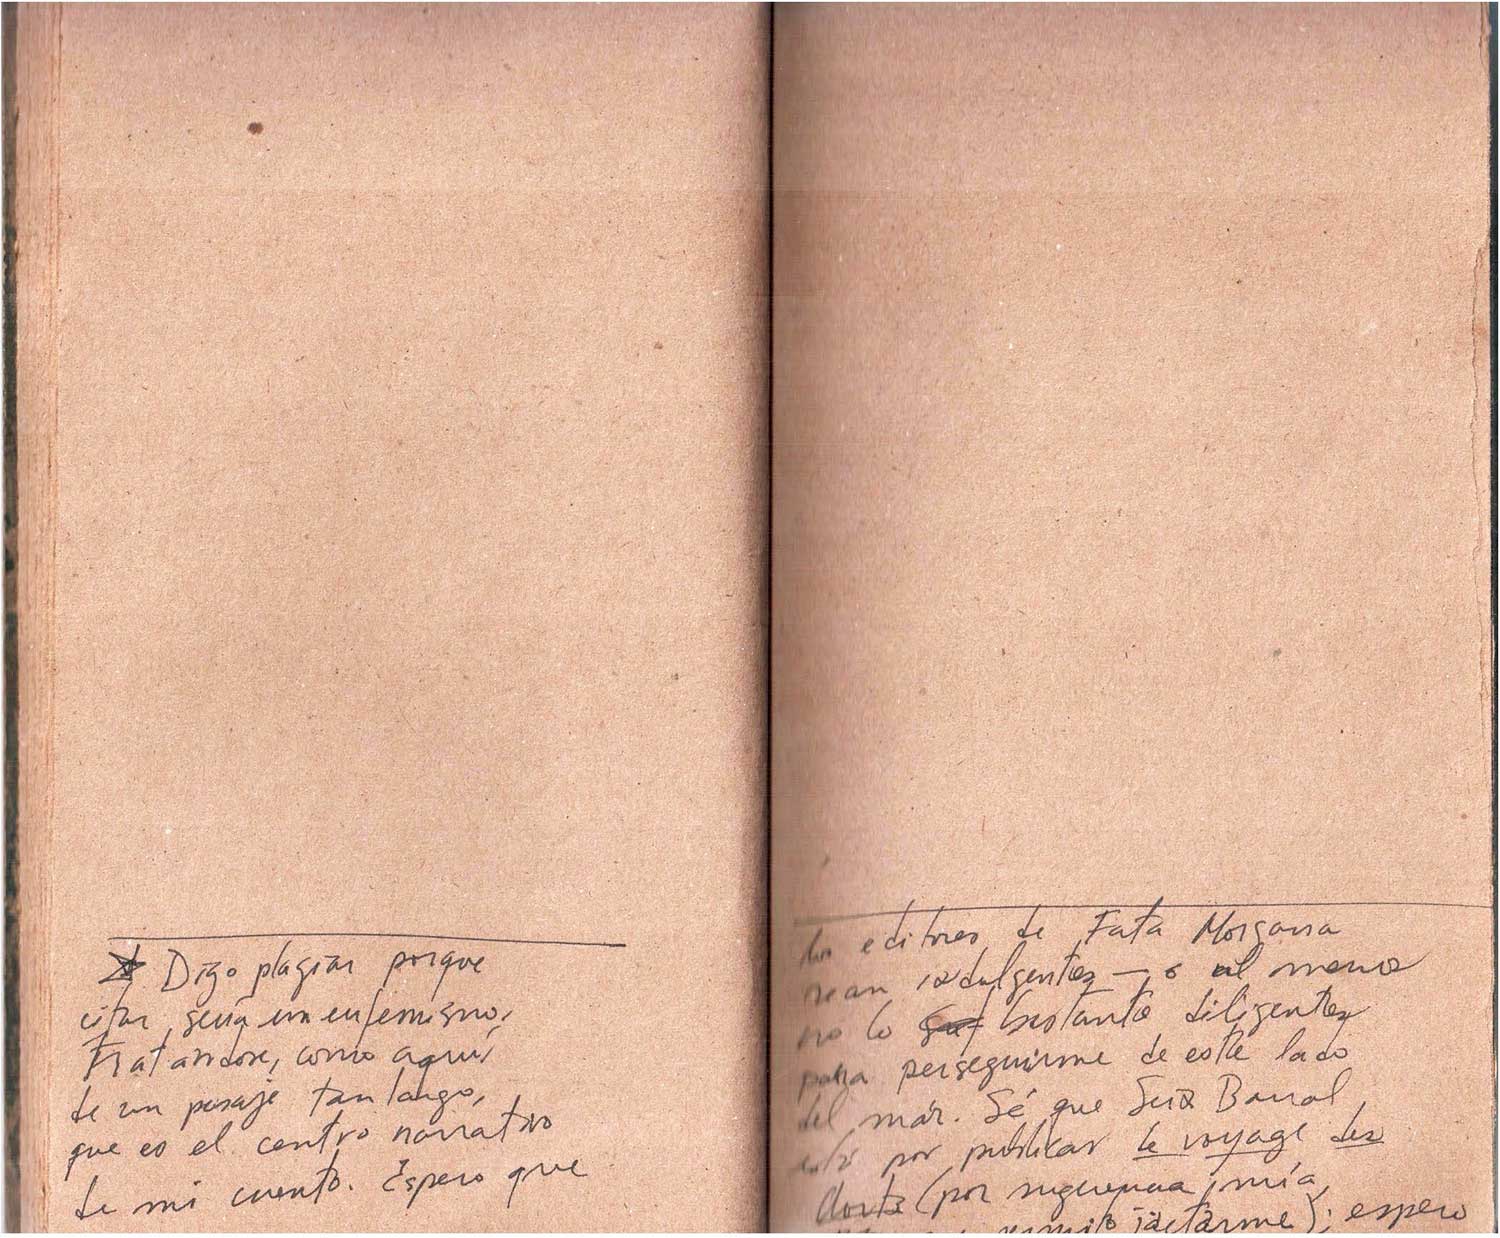 * Digo plagiar porque
citar sería un eufemismo,
tratándose, como aquí,
de un pasaje tan largo,
que es el centro narrativo
de mi cuento. Espero que
los editores de Fata Morgana
sean indulgentes — o al menos
no lo bastante diligentes
para perseguirme de este lado
del mar. Sé que Seix Barral
está por publicar le voyage des
(por sugerencia mía,
permito jactarme); espero